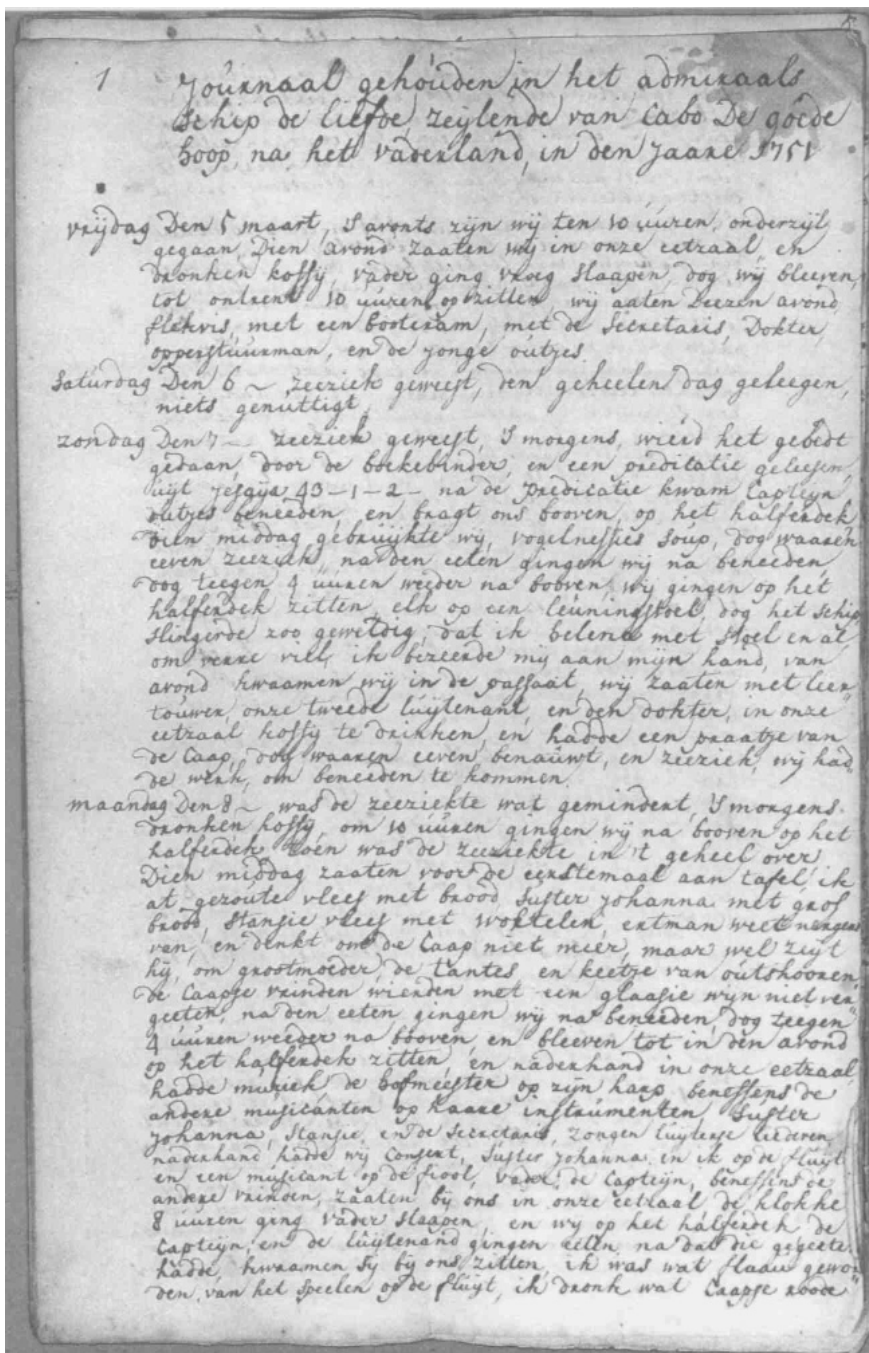 1 Journaal gehouden in het admiraals
schip de liefde, zeijlende van Cabo De goede
hoop, na het vaderland, in den Jaare 1751
vrijdag Den 5 maart, S avonts zijn wij ten 10 uuren, onderzijl
gegaan, Dien avond zaaten wij in onze eetzaal, en
dronken koffij, vader ging vroeg slaapen, dog wij bleeven,
tot ontrent 10 uuren, op zitten, wij aaten Deezen avond,
flekvis, met een booteram, met de Secretaris, Dokter,
opperstuurman, en de jonge outjes.
Saturdag Den 6 ~ zeeziek geweest, den geheelen dag geleegen,
niets genuttigt.
zondag Den 7 ~ zeeziek geweest, S morgens, wierd het gebedt
gedaan, door de boekebinder, en een predicatie geleesen,
uijt jesaija 43-1-2- na de predicatie kwam Capteijn
outjes beneeden, en bragt ons booven, op het halferdek,
dien middag gebruijkte wij, vogelnesjies soup, dog waaren
eeven zeeziek, na den eeten gingen wij na beneeden,
dog teegen 4 uuren weeder na booven, wij gingen op het
halferdek zitten, elk op een leuningstoel, dog het schip
slingerde zoo geweldig, dat ik belena met stoel en al,
om verre viel, ik bezeerde mij aan mijn hand, van
avond kwaamen wij in de passaat, wij zaaten met leer
touwer, onze tweede luijtenant, en den dokter, in onze
eetzaal koffij te drinken, en hadde een praatje van
de Caap, dog waaren eeven, benauwt, en zeeziek, wij had
de werk, om beneeden te kommen.
maandag Den 8 ~ was de zeeziekte wat gemindert, S morgens
dronken koffij, om 10 uuren gingen wij na booven op het
halferdek toen was de zeeziekte in 't geheel over
Dien middag zaaten voor de eerstemaal aan tafel, ik
at gezoute vlees met brood, Suster johanna met grof
brood, Stansie vlees met wortelen, ertman weet nergens
van, en denkt om de Caap niet meer, maar wel zeijt
hij, om grootmoeder, de tantes, en keetje van outshooren,
de Caapse vrinden wierden met een glaasie wijn niet ver
geeten, na den eeten gingen wij na beneeden, dog teegen
4 uuren weeder na booven, en bleeven tot in den avond
op het halferdek zitten, en naderhand in onze eetzaal,
hadde muziek, de hofmeester op zijn harp, beneffens de
andere musicanten op haare instrumenten, Suster
johanna, Stansie, en de Secretaris, zongen luijterse liederen,
naderhand hadde wij Consert, Suster johanna en ik op de fluijt
en een musicant op de fiool, vader, de Capteijn, beneffens de
andere vrinden, zaaten bij ons in onze eetzaal de klokke
8 uuren ging vader slaapen, en wij op het halferdek de
Capteijn, en de luijtenand gingen eeten na dat die gegeete
hadde, kwaamen sij bij ons zitten, ik was wat flaau gewor
den, van het speelen op de fluijt, ik dronk wat Caapse roode